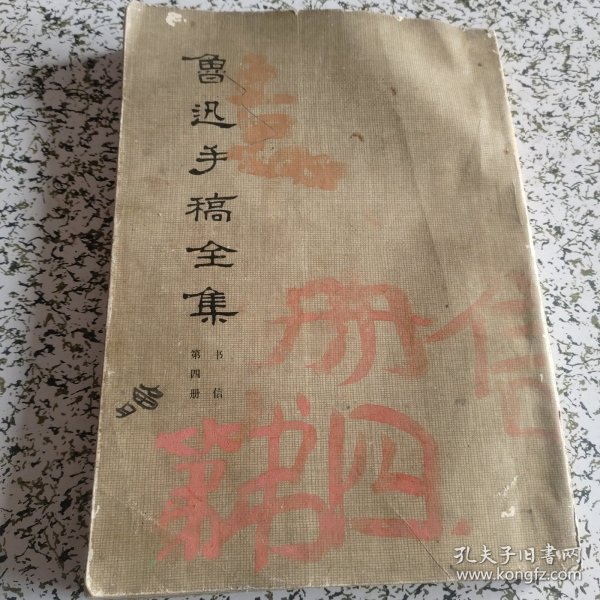 魯迅手稿全集
书信
第四册
信
册
第 书 四
孔夫子旧书网
www.kongfz.com